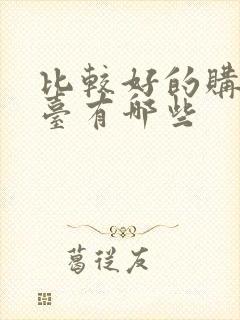 比較好的購
臺有哪些
葛從友